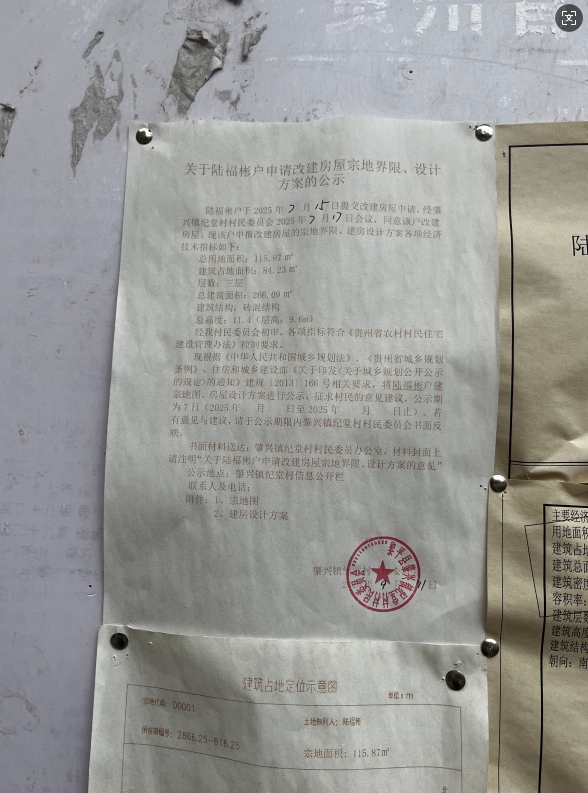 关于陆福彬户申请改建房屋宗地界限、设计
方案的公示
陆福彬户于2025年7月15日提交改建房屋申请、经肇
兴镇纪堂村村民委员会2025年7月17日会议，同意该户改建
房屋。现该户申报改建房屋的宗地界限、建房设计方案各项经济
技术指标如下：
总用地面积：115.87㎡
建筑占地面积：84.23㎡
层数：三层
总建筑面积：266.09㎡
建筑结构：砖混结构
总高度：11.4（层高：9.6m）
经我村民委员会初审，各项指标符合《贵州省农村村民住宅
建设管理办法》控制要求。
现根据《中华人民共和国城乡规划法》、《贵州省城乡规划
条例》、住房和城乡建设部《关于印发<关于城乡规划公开公示
的规定>的通知》建规［2013］166号相关要求，将陆福彬户建
宗地图、房屋设计方案进行公示，征求村民的意见建议，公示期
为7日（2025年 月 日至2025年 月 日止）。若
有意见与建议，请于公示期限内肇兴镇纪堂村村民委员会书面反
映。
书面材料送达：肇兴镇纪堂村村民委员办公室，材料封面上
请注明“关于陆福彬户申请改建房屋宗地界限、设计方案的意见”
公示地点：肇兴镇纪堂村信息公开栏
联系人及电话：
附件：1、宗地图
2、建房设计方案
肇兴镇
日
建筑占地定位示意图
单位：m
宗地代码：00001
土地权利人：陆福彬
所在图幅号：2866.25-616.25
宗地面积：115.87㎡
陆
主要经济
用地面积
建筑占地
建筑总面
建筑密度
容积率：
建筑层数
建筑高度
建筑结构
朝向：南